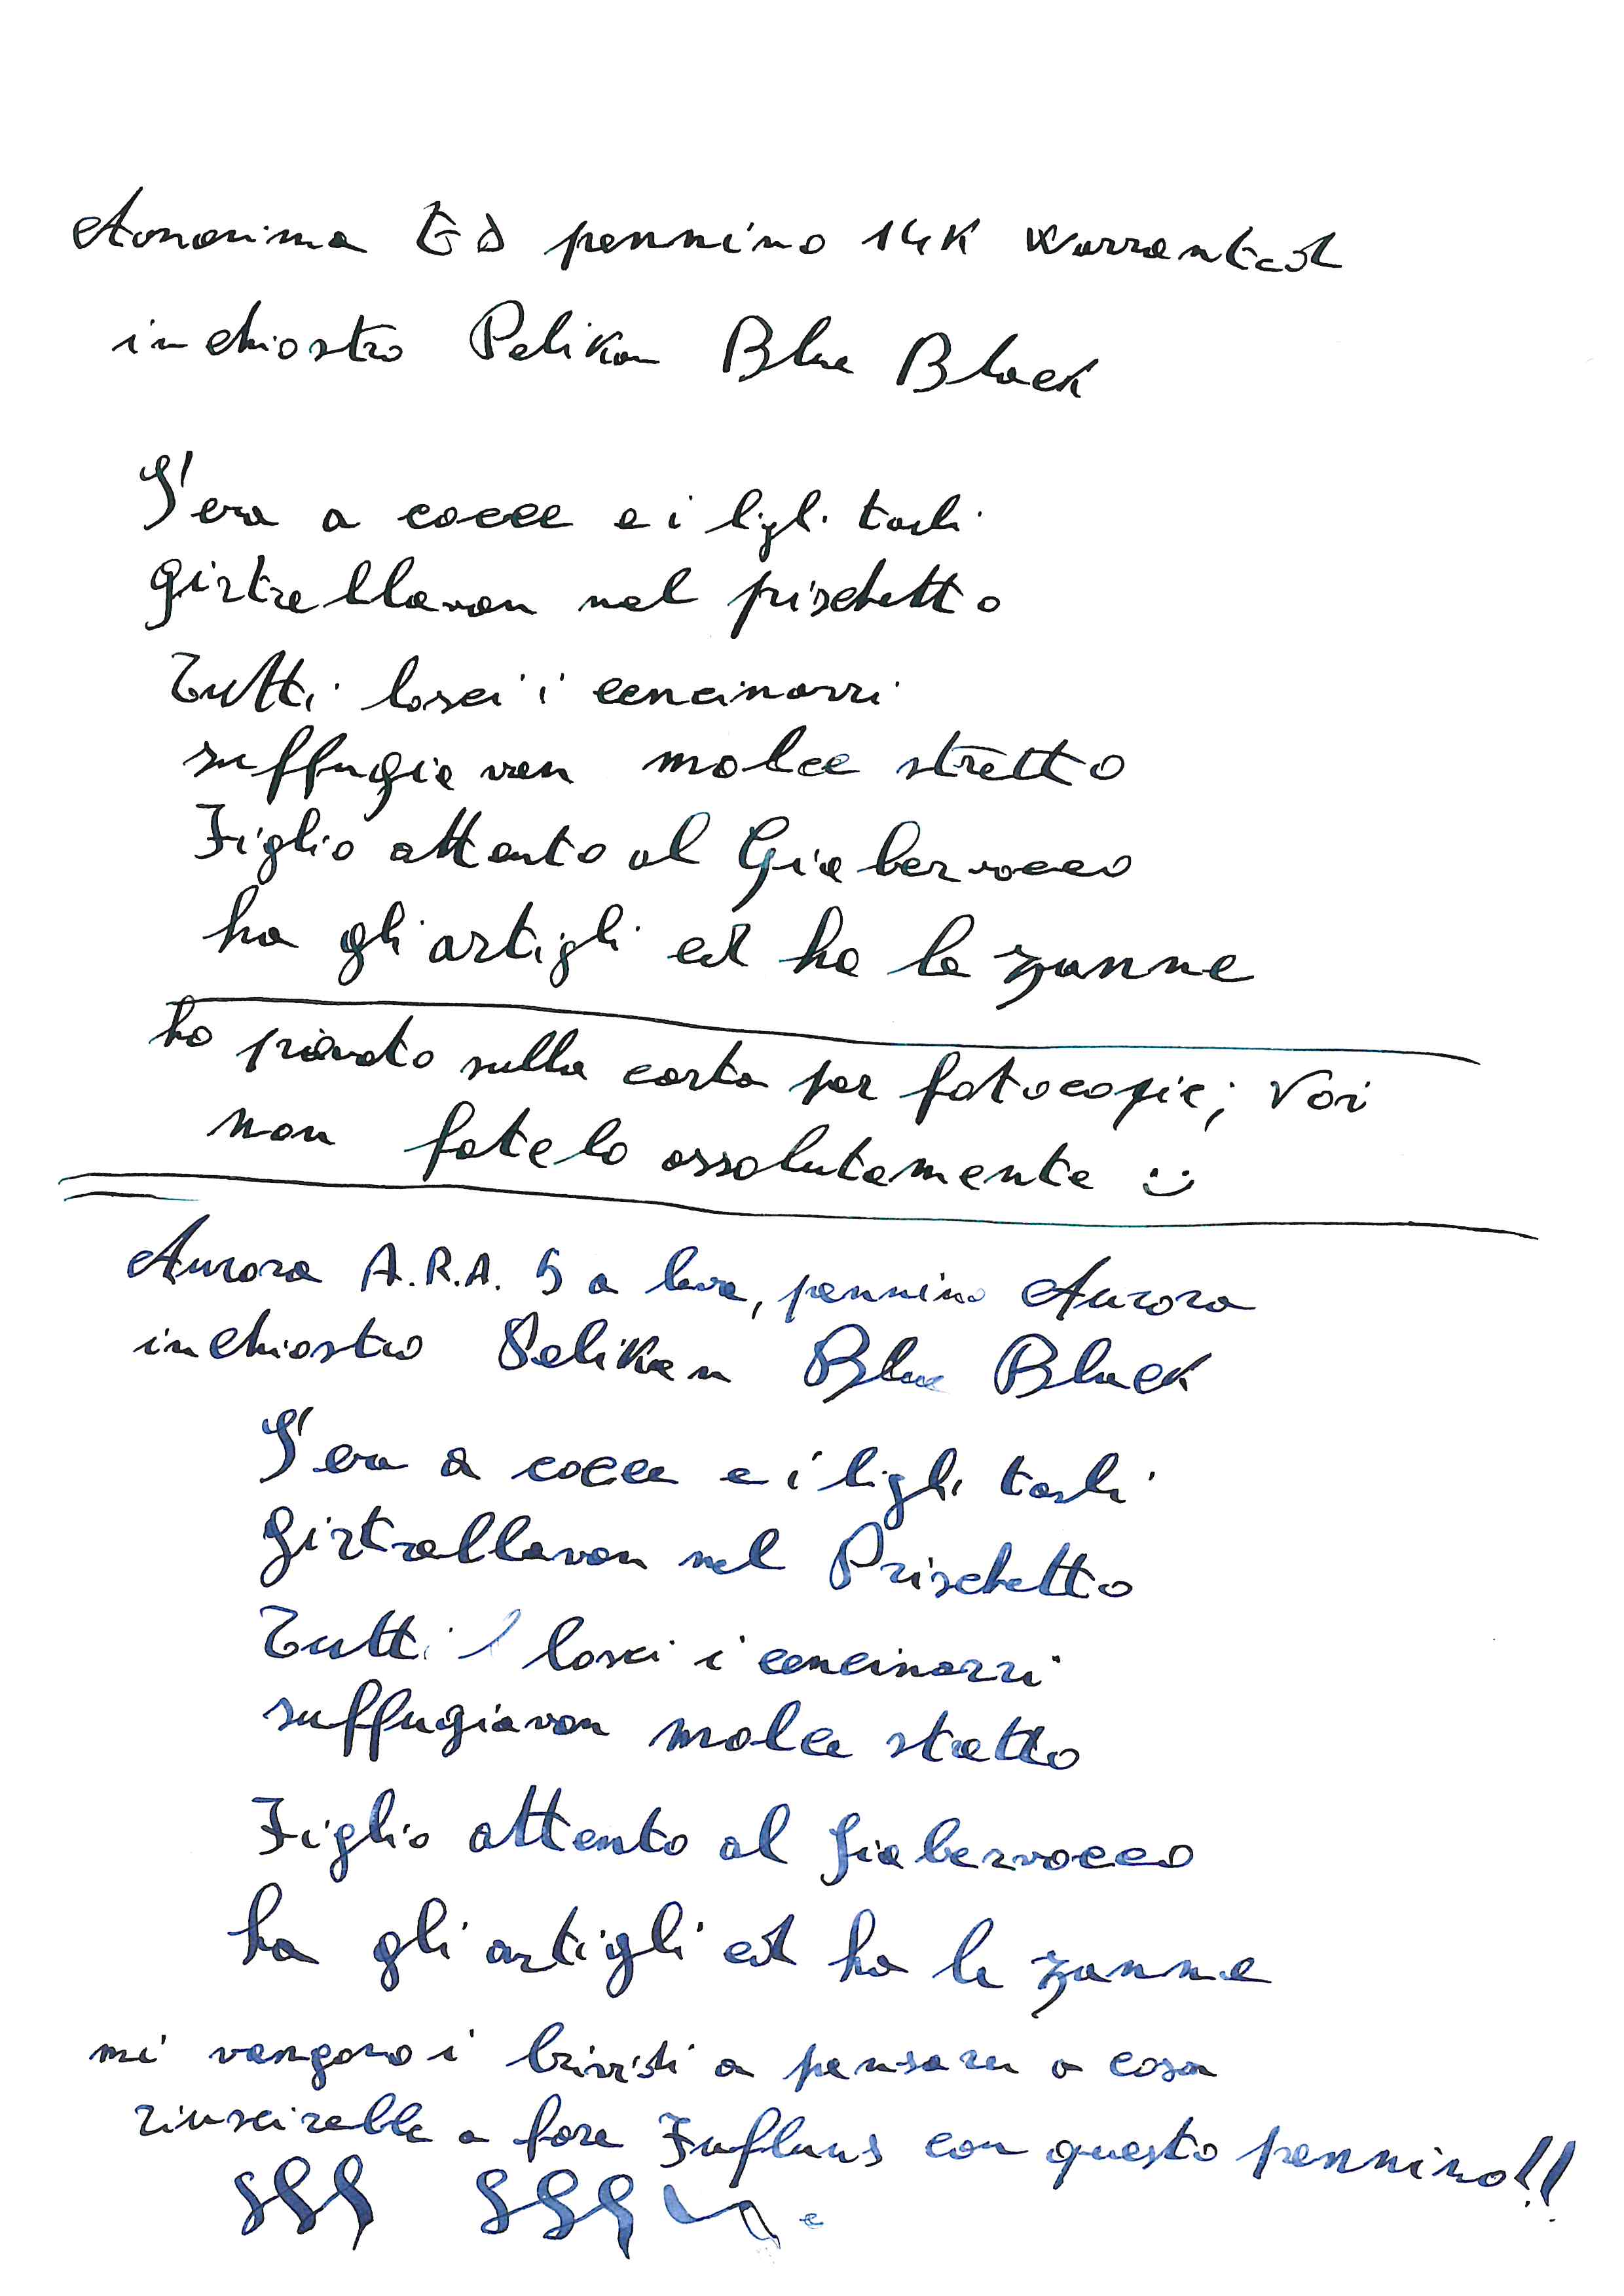 Anonima ED pennino 14K Warranted
inchiostro Pelikan Blue Black
S'era a cocce e i ligli tarli
girtrellavan nel pischetto
Tutti losci i cencinarri
suffugiavan molce stretto
Figlio attento al Giabervocco
ha gli artigli ed ha le zanne
ho provato sulla carta per fotocopie; Voi
non fatelo assolutamente :-)
Aurora A.R.A. 5 a leva, pennino Aurora
inchiostro Pelikan Blue Black
S'era a cocce e i ligli tarli
girtrellavan nel Prischetto
Tutti losci i cencinarri
suffugiavan molce stretto
Figlio attento al Giabervocco
ha gli artigli ed ha le zanne
mi vengono i brividi a pensare a cosa
riuscirebbe a fare Fufluns con questo pennino!!